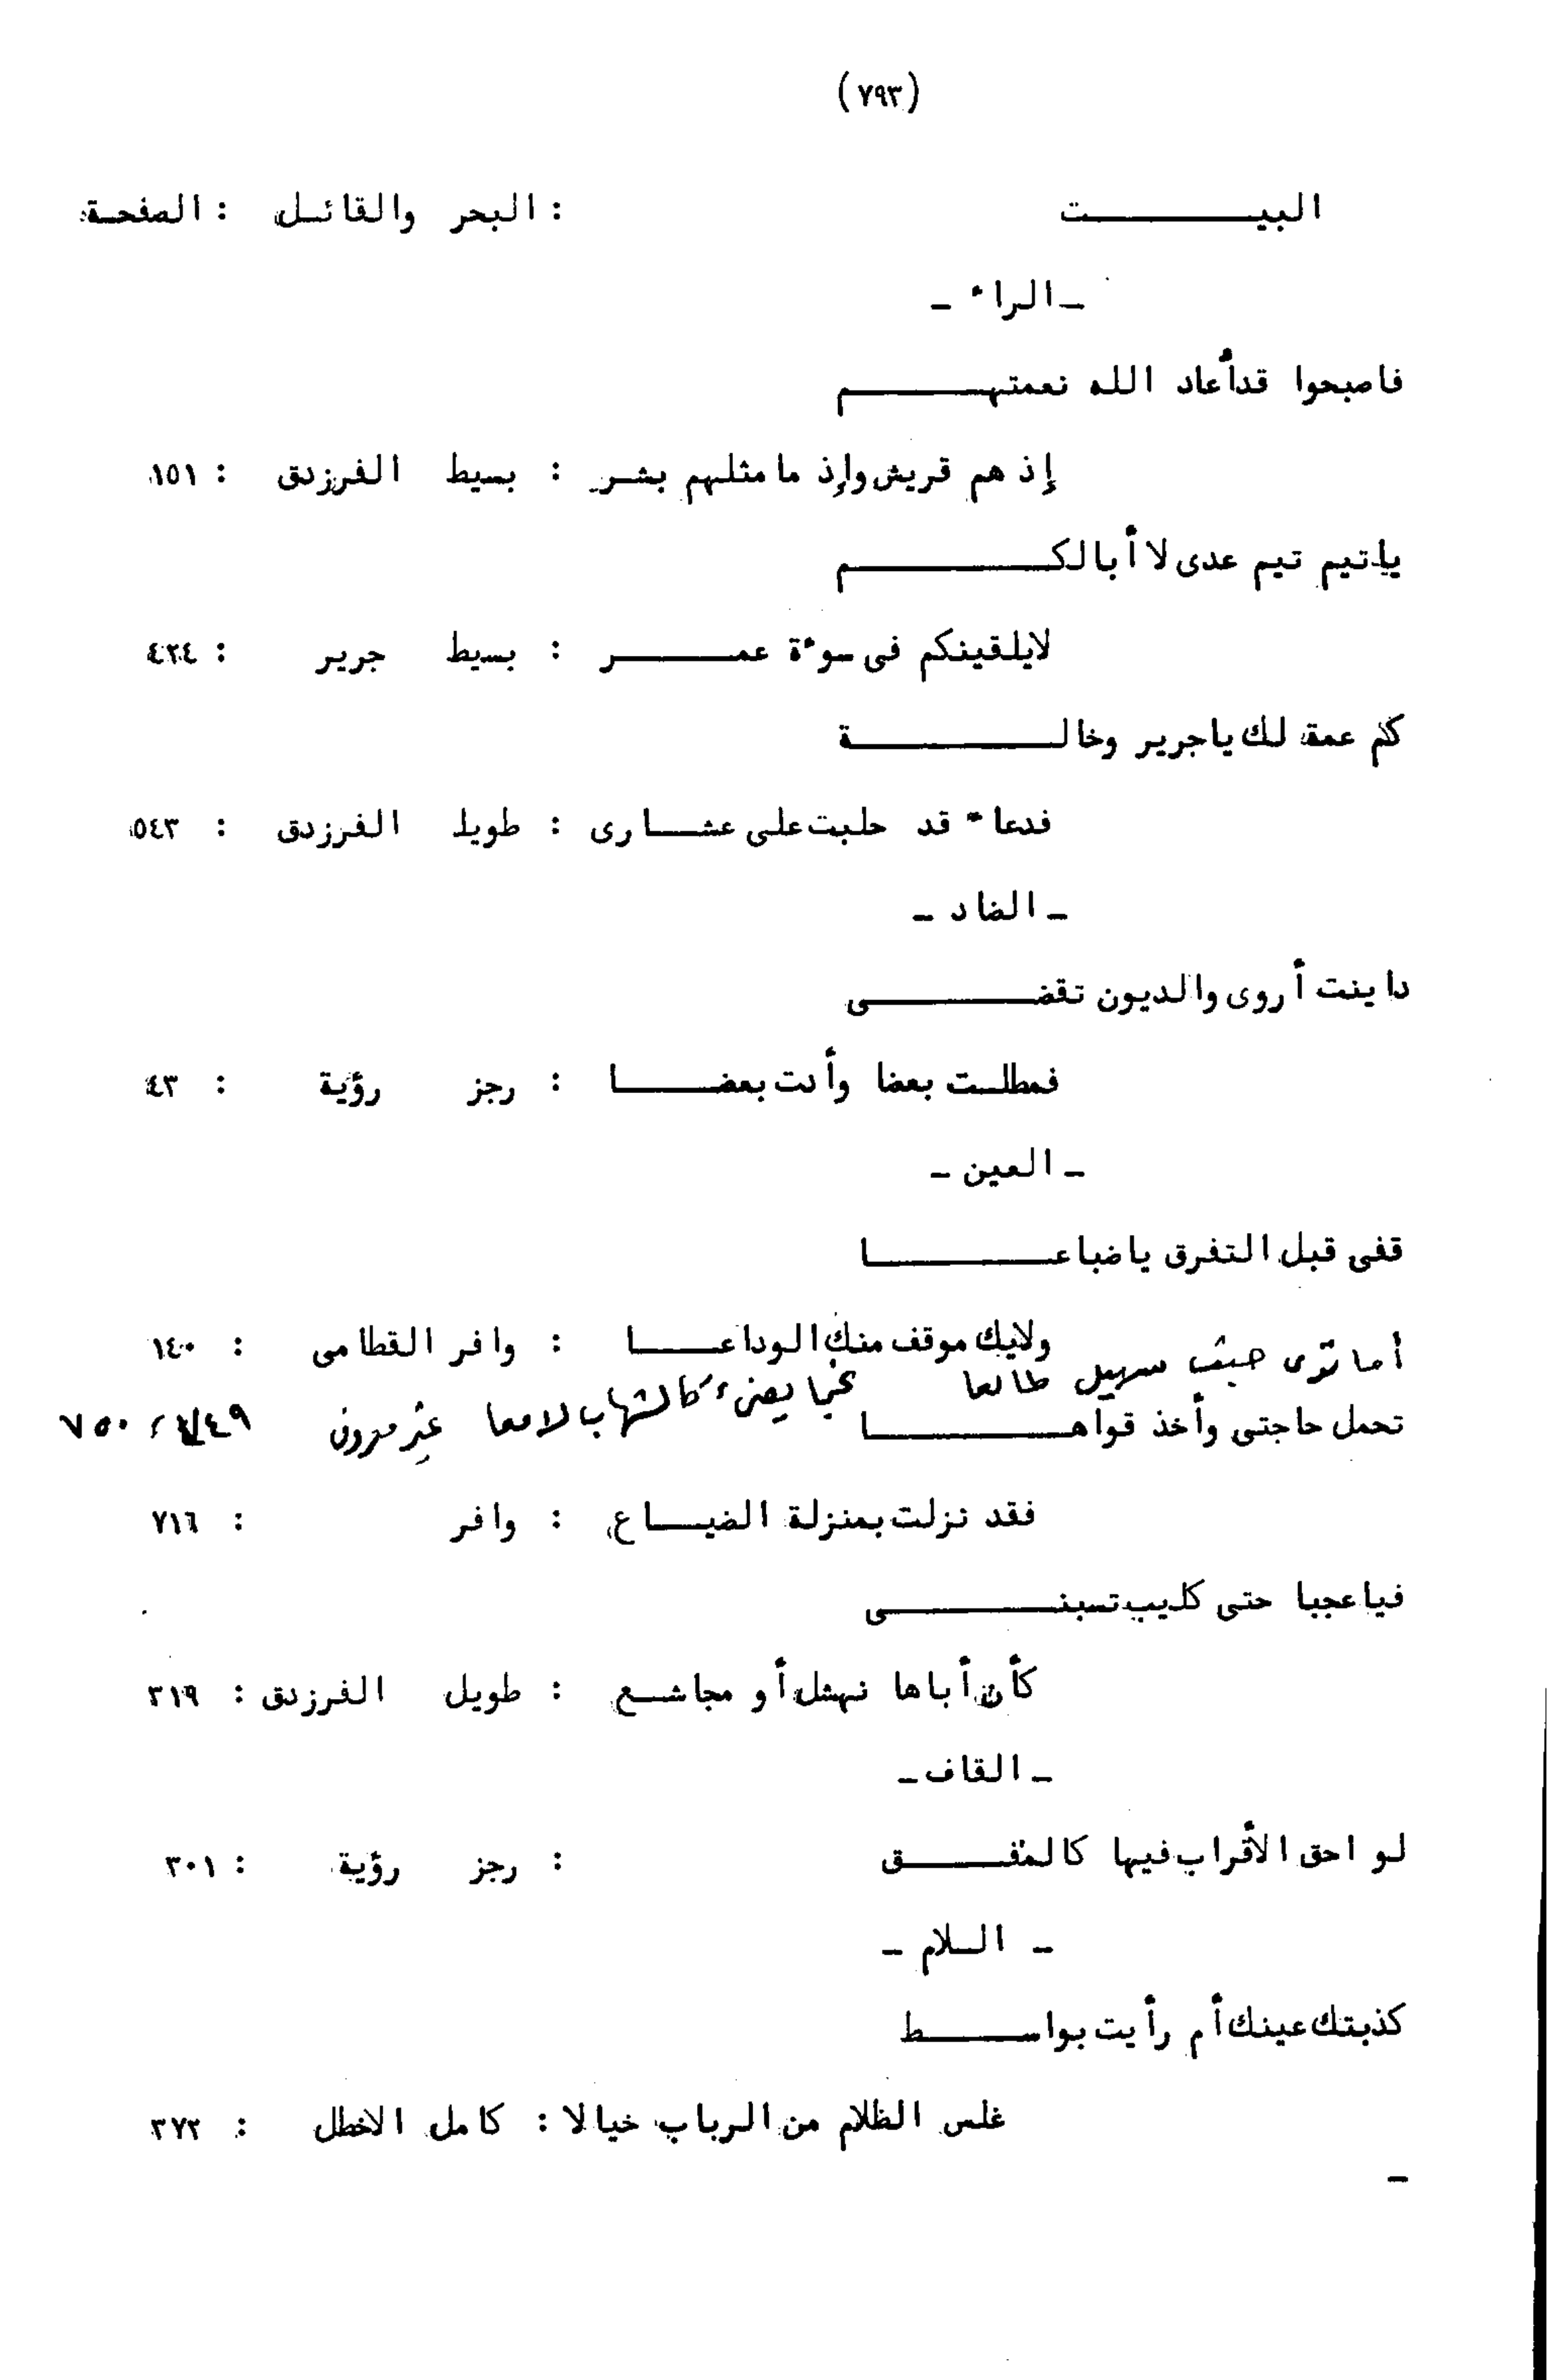 (٧٩٣)
البيت : البحر والقائل : الصفحة
ـ الراء ـ
فاصبحوا قد أعاد الله نعمتهم
إذ هم قريش وإذ ما مثلهم بشر : بسيط الفرزدق : ١٥١
يا تيم تيم عدى لا أبا لكم
لا يلقينكم فى سوءة عمر : بسيط جرير : ٤٢٤
كم عمة لك يا جرير وخالة
فدعاء قد حلبت على عشارى : طويل الفرزدق : ٥٤٣
ـ الضاد ـ
داينت أروى والديون تقضى
فمطلت بعضا وأدت بعضا : رجز رؤبة : ٤٣
ـ العين ـ
قفى قبل التفرق يا ضباعا
ولا يك موقف منك الوداعا : وافر القطامى : ١٤٠
أما ترى حيث سهيل طالعا نجما يضىء كالشهاب لامعا غير معروف ٧٥٠
تحمل حاجتى وأخذ قواها
فقد نزلت بمنزلة الضياع : وافر : ٧١٦
فيا عجبا حتى كليب تسبنى
كأن أباها نهشل أو مجاشع : طويل الفرزدق : ٣١٩
ـ القاف ـ
لواحق الأقراب فيها كالمقق : رجز رؤية : ٣٠١
ـ اللام ـ
كذبتك عينك أم رأيت بواسط
غلس الظلام من الرباب خيالا : كامل الاخطل : ٣٧٢
ـ